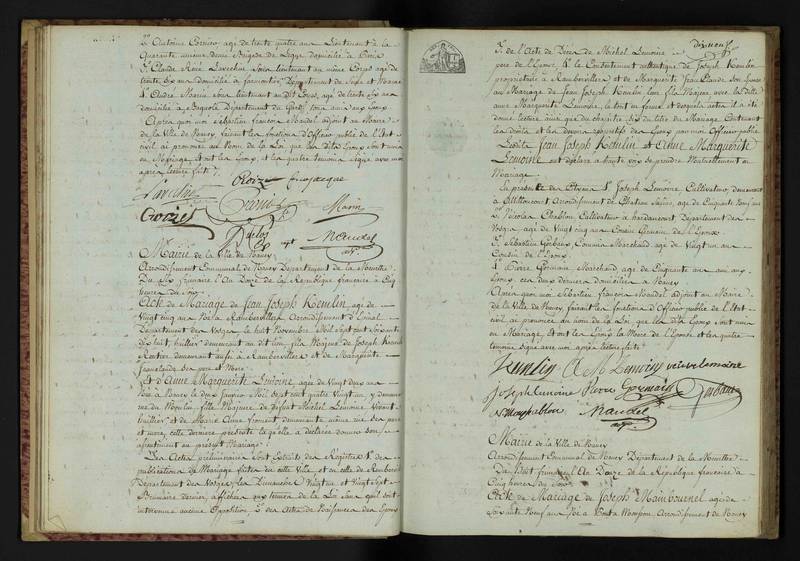 2. Antoine agé de trente quatre ans Lieutenant à la
domicilié à
3. Claude sous lieutenant au même Corps agé de
trente six ans domicilié à Département de Seine et Marne
4. André Marin sous lieutenant au dit Corps, agé de trente six ans
domicilié à Département du Gard, tous amis des Epoux
Après quoi moi Sébastien françois Mandel adjoint au Maire
de la Ville de Nancy, faisant les fonctions d'Officier public de l'État
civil ai prononcé au Nom de la Loi que les dits Epoux sont unis
en Mariage, et ont les Epoux et les quatre témoins signé avec moi
après lecture faite.
Marin
Duclos
Mandel
Mairie de la Ville de Nancy
Arrondissement Communal de Nancy Département de la Meurthe
Du Six frimaire l'An Douze de la République française à Cinq
heures du Soir
Acte de Mariage de Jean Joseph Kemlin, agé de
Vingt cinq ans Né à Rambervillers Arrondissement d'Epinal
Département des Vosges le huit Novembre Mil Sept cent Soixante
dix huit, huillier demeurant au dit lieu, fils Majeur de Joseph Kemlin
Rentier demeurant aussi à Rambervillers et de Marguerite
francolande ses père et Mère
Et d'Anne Marguerite Lemoine agée de Vingt deux ans
Née à Nancy le deux Janvier Mil Sept cent quatre Vingt un, y demeurant
rue du Moulin, fille Majeure de défunt Michel Lemoine Vivant
huillier, et de Marie Anne froment, demeurante même rue ses père
et mère, cette dernière présente laquelle a déclaré donner son
consentement au présent Mariage.
Les Actes préliminaires sont Extraits des Registres des
publications de Mariage faites en cette Ville, et en celle de Rambervillers
Département des Vosges les Dimanches Vingt un et Vingt Sept
Brumaire dernier, affichées aux termes de la Loi sans qu'il soit
intervenu aucune Opposition 2. des Actes de Naissances des Epoux
dixneuf
3. de l'Acte de Décès de Michel Lemoine
père de l'Epouse, 4. le Consentement authentique de Joseph Kemlin
propriétaire à Rambervillers et de Marguerite son Epouse
au Mariage de Jean Joseph Kemlin leur fils Majeur avec la dite
Anne Marguerite Lemoine, le tout en forme, et desquels actes il a été
donné lecture ainsi que du chapitre Six du titre du Mariage Contenant
les droits et les devoirs respectifs des Epoux par moi Officier public
Lesdits Jean Joseph Kemlin et Anne Marguerite
Lemoine ont déclaré à haute voix se prendre Mutuellement en
Mariage.
En présence des Citoyens 1. Joseph Lemoine, Cultivateur, demeurant
à Arrondissement de Château Salins, agé de Cinquante Neuf ans
2. Nicolas Chablou, Cultivateur à hardancourt Département des
Vosges agé de Vingt cinq ans Cousin Germain de l'Epoux
3. Sébastien Commis Marchand agé de Vingt un ans
Cousin de l'Epoux.
4. Pierre Germain Marchand, agé de Cinquante ans ami des
Epoux, ces deux derniers domiciliés à Nancy
Après quoi moi Sébastien françois Mandel adjoint au Maire
de la Ville de Nancy, faisant les fonctions d'Officier public de l'État
civil, ai prononcé au nom de la Loi que les dits Epoux sont unis
en Mariage, Et ont les Epoux la Mère de l'Epouse et les quatre
témoins signé avec moi après lecture faite
Kemlin A M Lemoine veuve lemoine
joseph lemoine Pierre Germain
Mandel
Mairie de la Ville de Nancy
Arrondissement Communal de Nancy Département de la Meurthe
Du Huit frimaire l'An Douze de la République française à
Cinq heures du Soir
Acte de Mariage de Joseph Mambournel agé de
Soixante Neuf ans Né à Pont à Mousson Arrondissement de Nancy